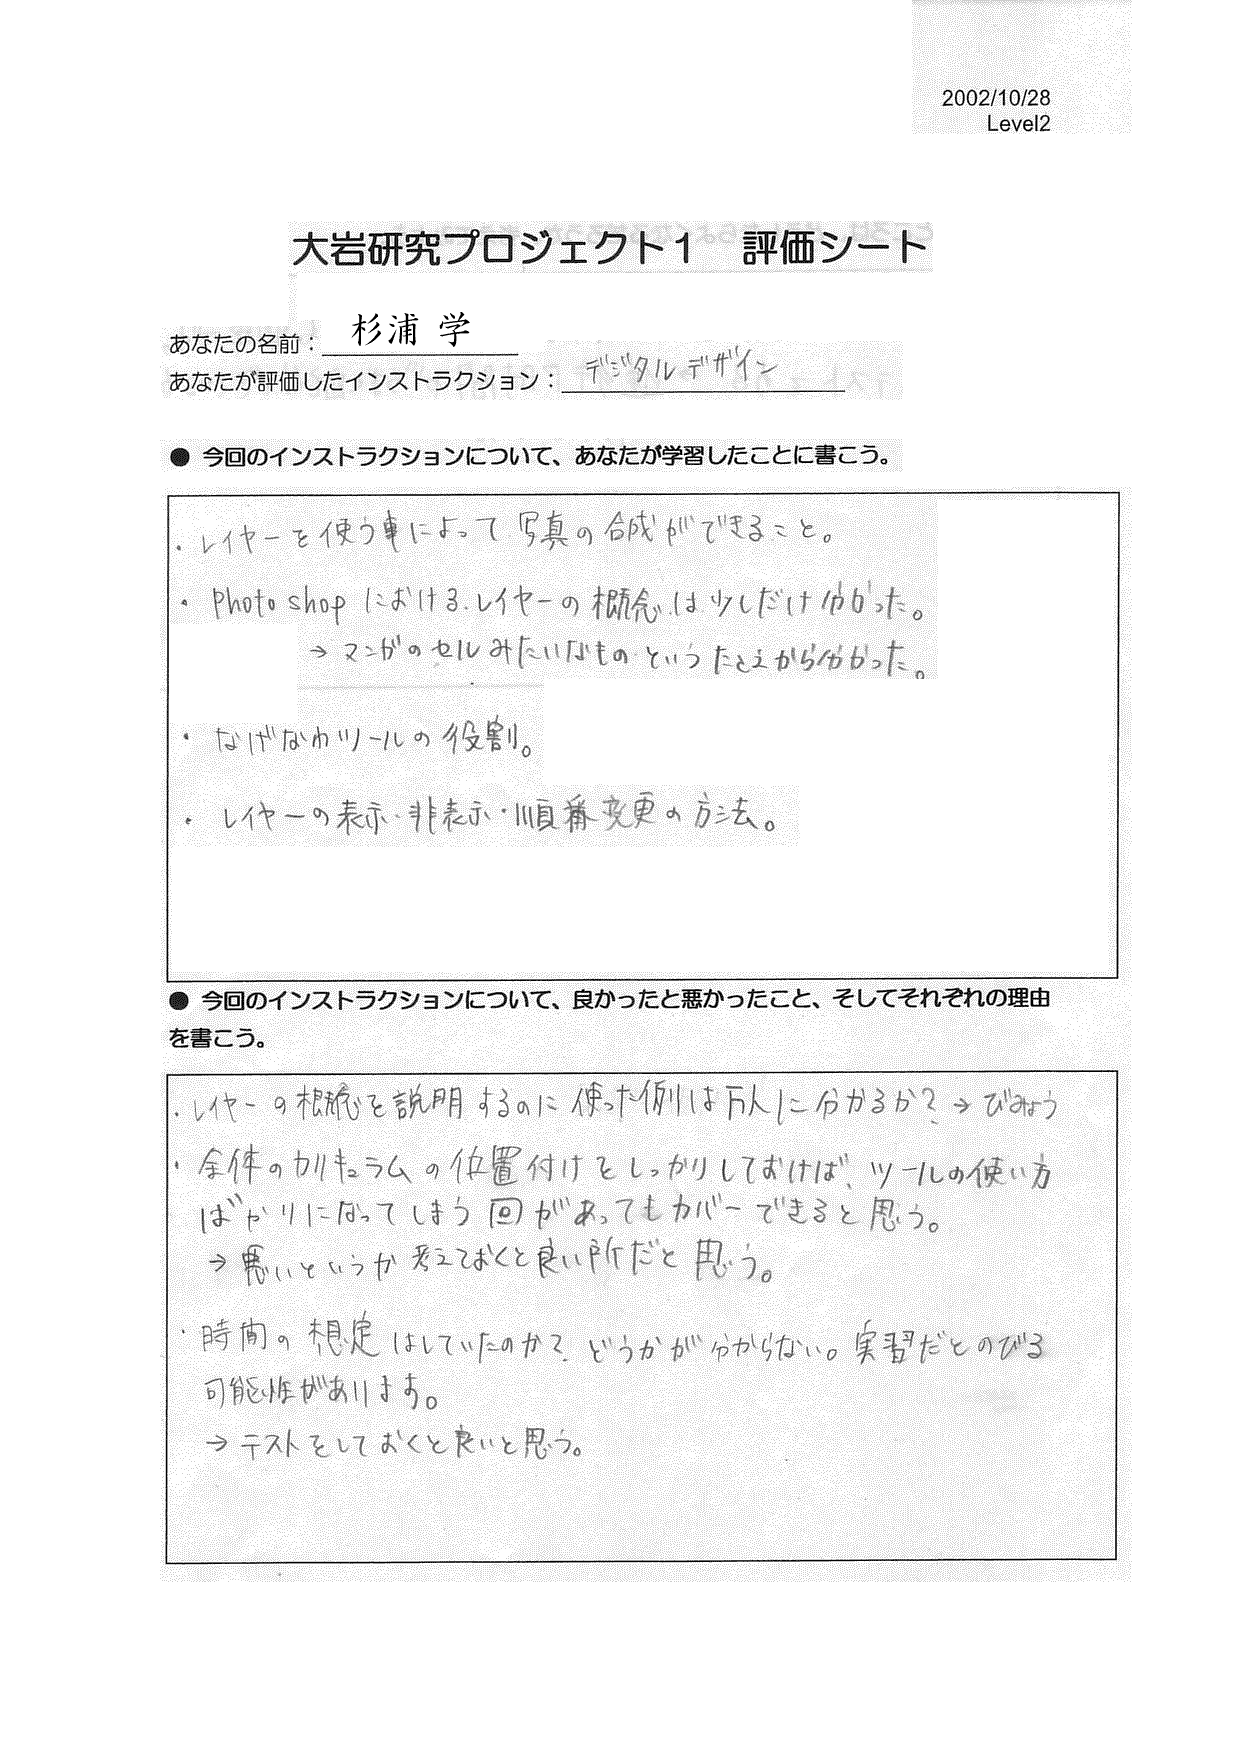 2002/10/28
Level2
大岩研究プロジェクト1　評価シート
あなたの名前：杉浦 学
あなたが評価したインストラクション：デジタルデザイン
● 今回のインストラクションについて、あなたが学習したことに書こう。
・レイヤーを使う事によって写真の合成ができること。
・Photo shopにおける、レイヤーの概念は少しだけ分かった。
→マンガのセルみたいなものというたとえから分かった。
・なげなわツールの役割。
・レイヤーの表示・非表示・順番変更の方法。
● 今回のインストラクションについて、良かったと悪かったこと、そしてそれぞれの理由
を書こう。
・レイヤーの概念を説明するのに使った例は万人に分かるか？→びみょう
・全体のカリキュラムの位置付けをしっかりしておけば、ツールの使い方
ばかりになってしまう回があってもカバーできると思う。
→悪いというか考えておくと良い所だと思う。
・時間の想定はしていたのか？どうかが分からない。実習だとのびる
可能性があります。
→テストをしておくと良いと思う。